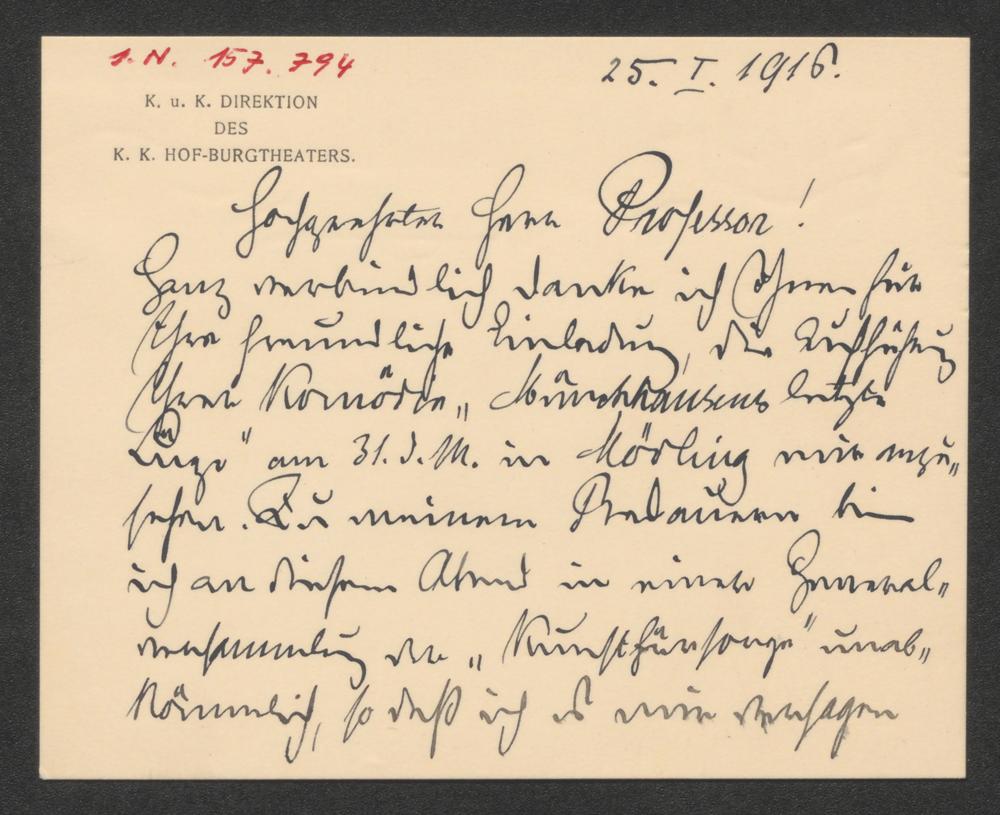 I. N. 157.794
25. I. 1916.
K. u. K. DIREKTION
DES
K. K. HOF-BURGTHEATERS.
Hochgeehrter Herr Professor!
Ganz verbindlich danke ich Ihnen für
Ihre freundliche Einladung, die Aufführung
Ihrer Komödie „Münchhausens letzte
Lüge" am 31. d. M. in Mödling mir anzu„
sehen. Zu meinem Bedauern bin
ich an diesem Abend in einer General„
versammlung der „Kunstfürsorge" unab„
kömmlich, so daß ich es mir versagen